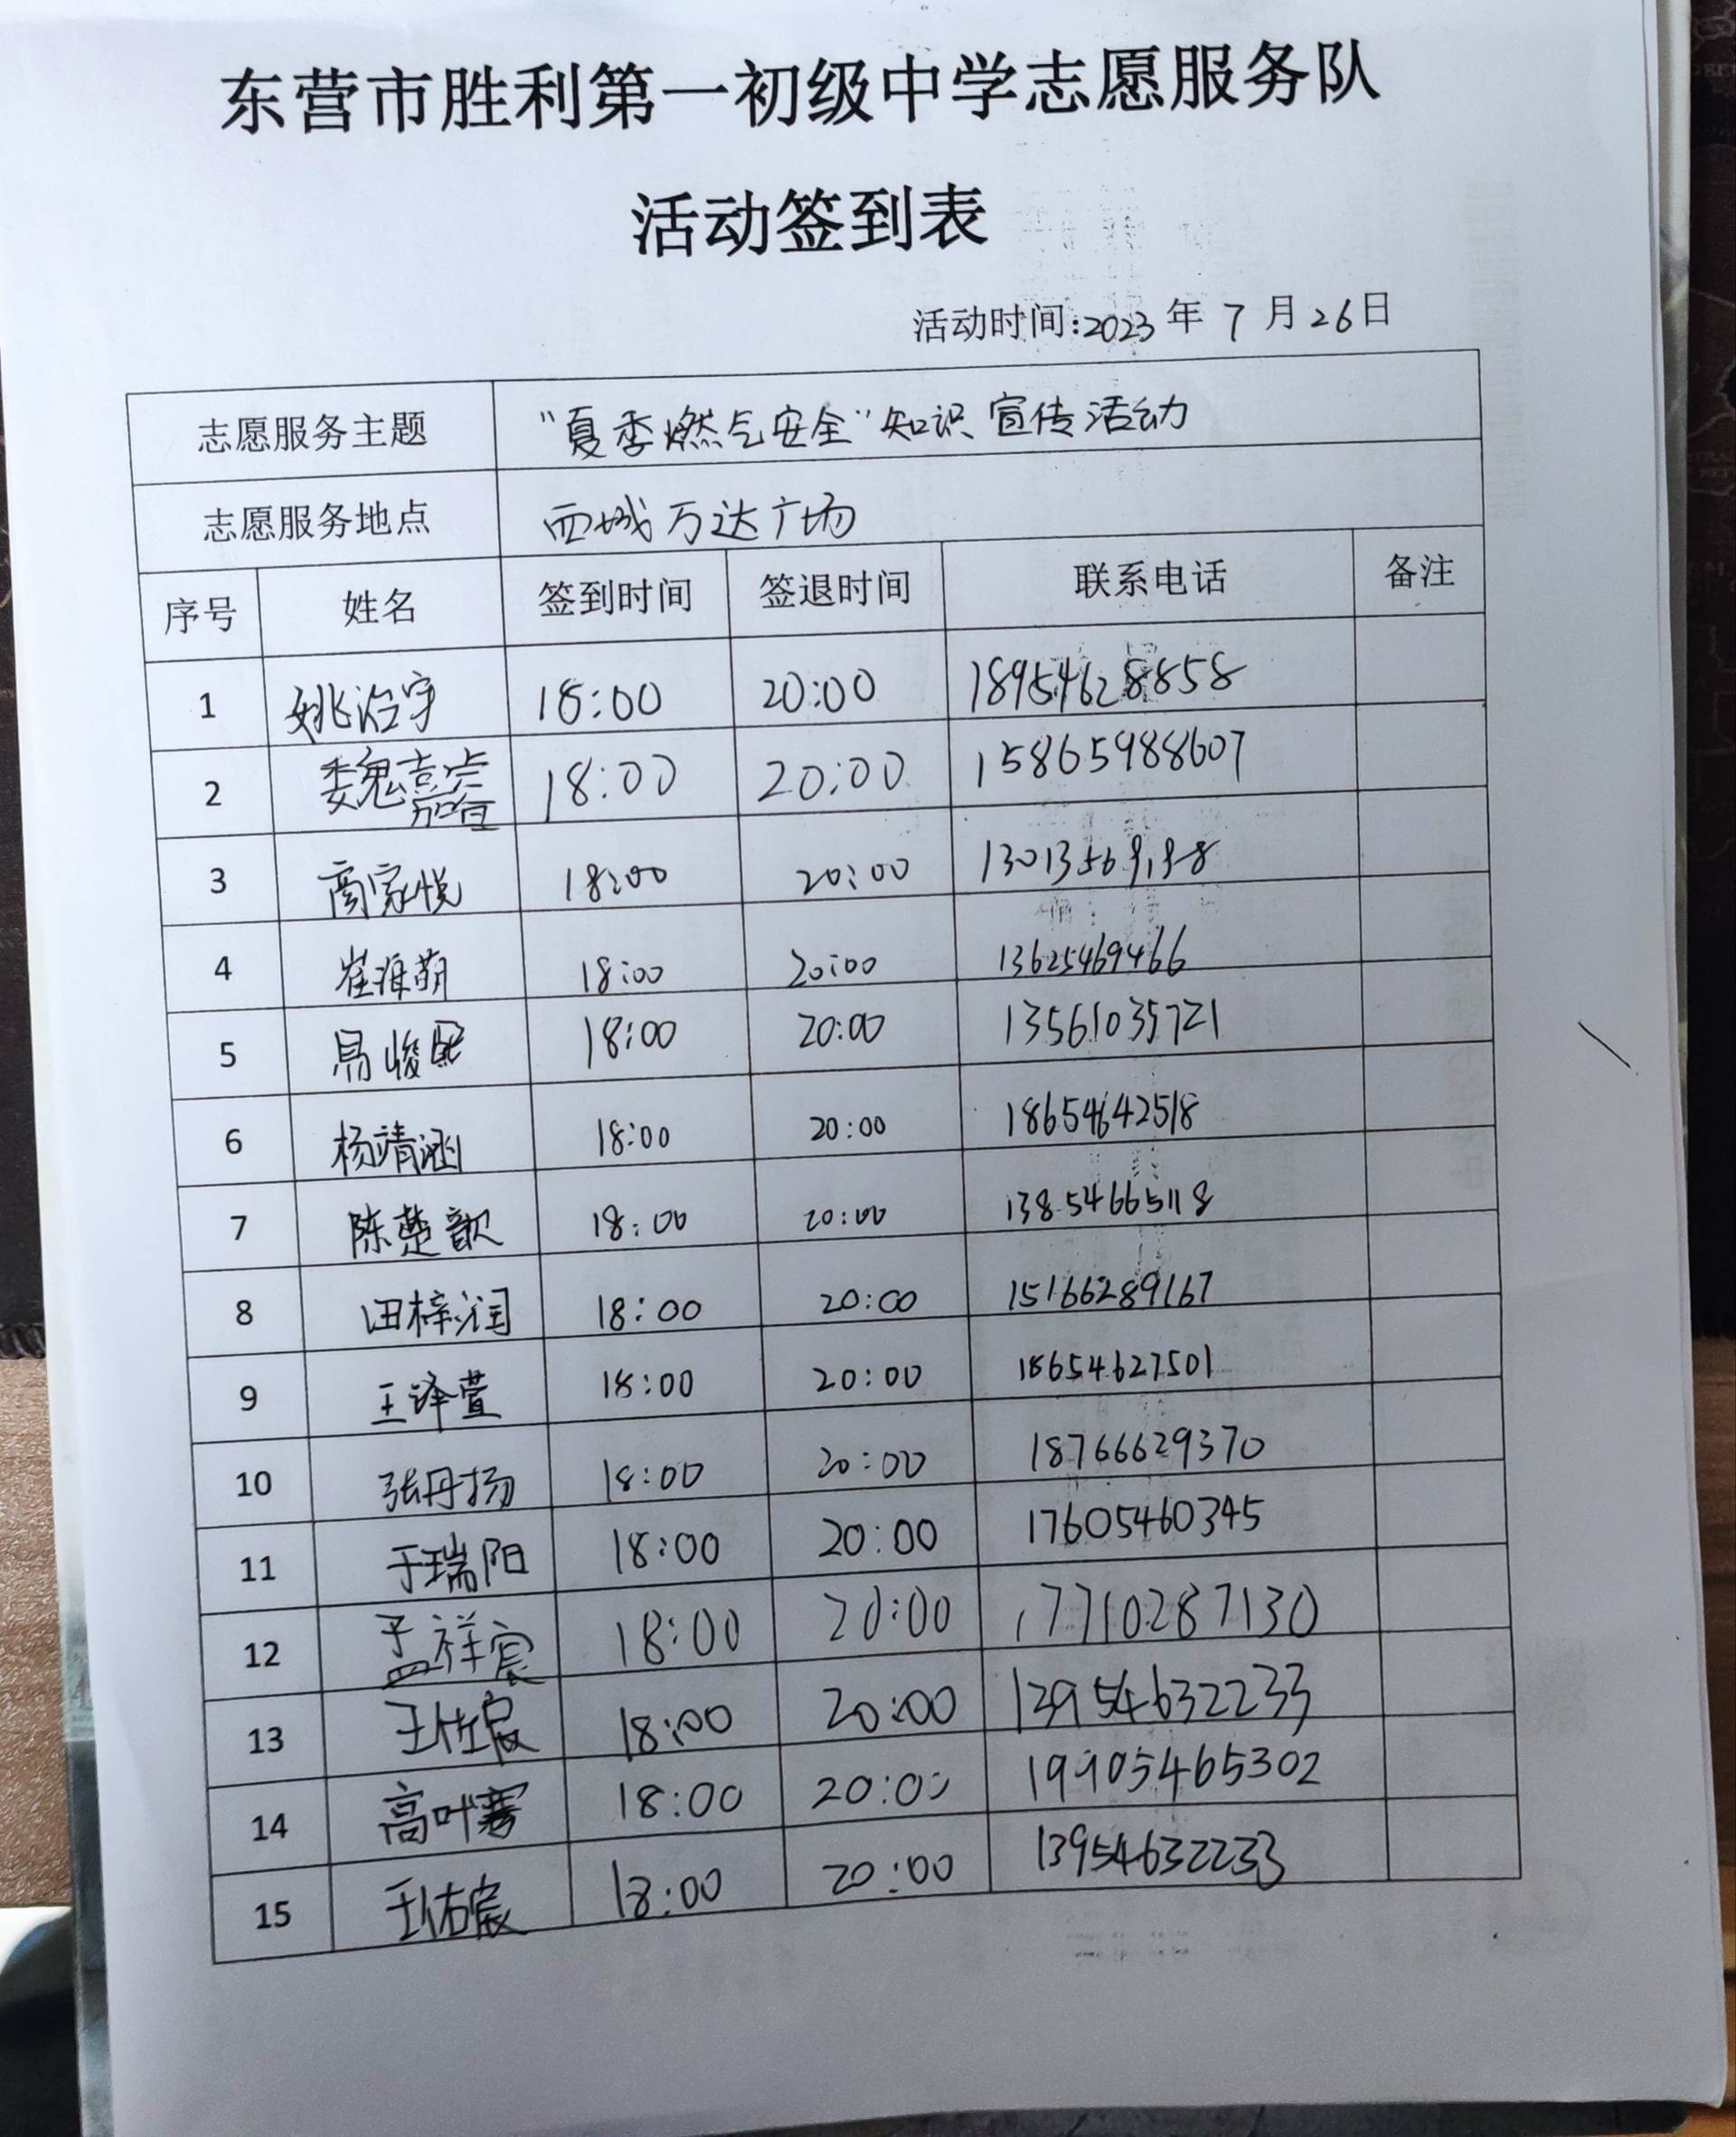 东营市胜利第一初级中学志愿服务队
活动签到表
活动时间:2023年7月26日
志愿服务主题 “夏季燃气安全”知识宣传活动
志愿服务地点 西城万达广场
序号 姓名 签到时间 签退时间 联系电话 备注
1 姚治宇 18:00 20:00 18954628858
2 魏嘉睿 18:00 20:00 15865988607
3 商家悦 18:00 20:00
4 崔雅萌 18:00 20:00 13625469466
5 易峻熙 18:00 20:00 13561035721
6 杨靖涵 18:00 20:00 18654642518
7 陈楚歆 18:00 20:00 13854665118
8 田梓润 18:00 20:00 15166289167
9 王译萱 18:00 20:00 18654627501
10 张丹扬 18:00 20:00 18766629370
11 于瑞阳 18:00 20:00 17605460345
12 孟祥宸 18:00 20:00 17710287130
13 王佐宸 18:00 20:00 13954632233
14 高叶骞 18:00 20:00 19905465302
15 王佑宸 18:00 20:00 13954632233